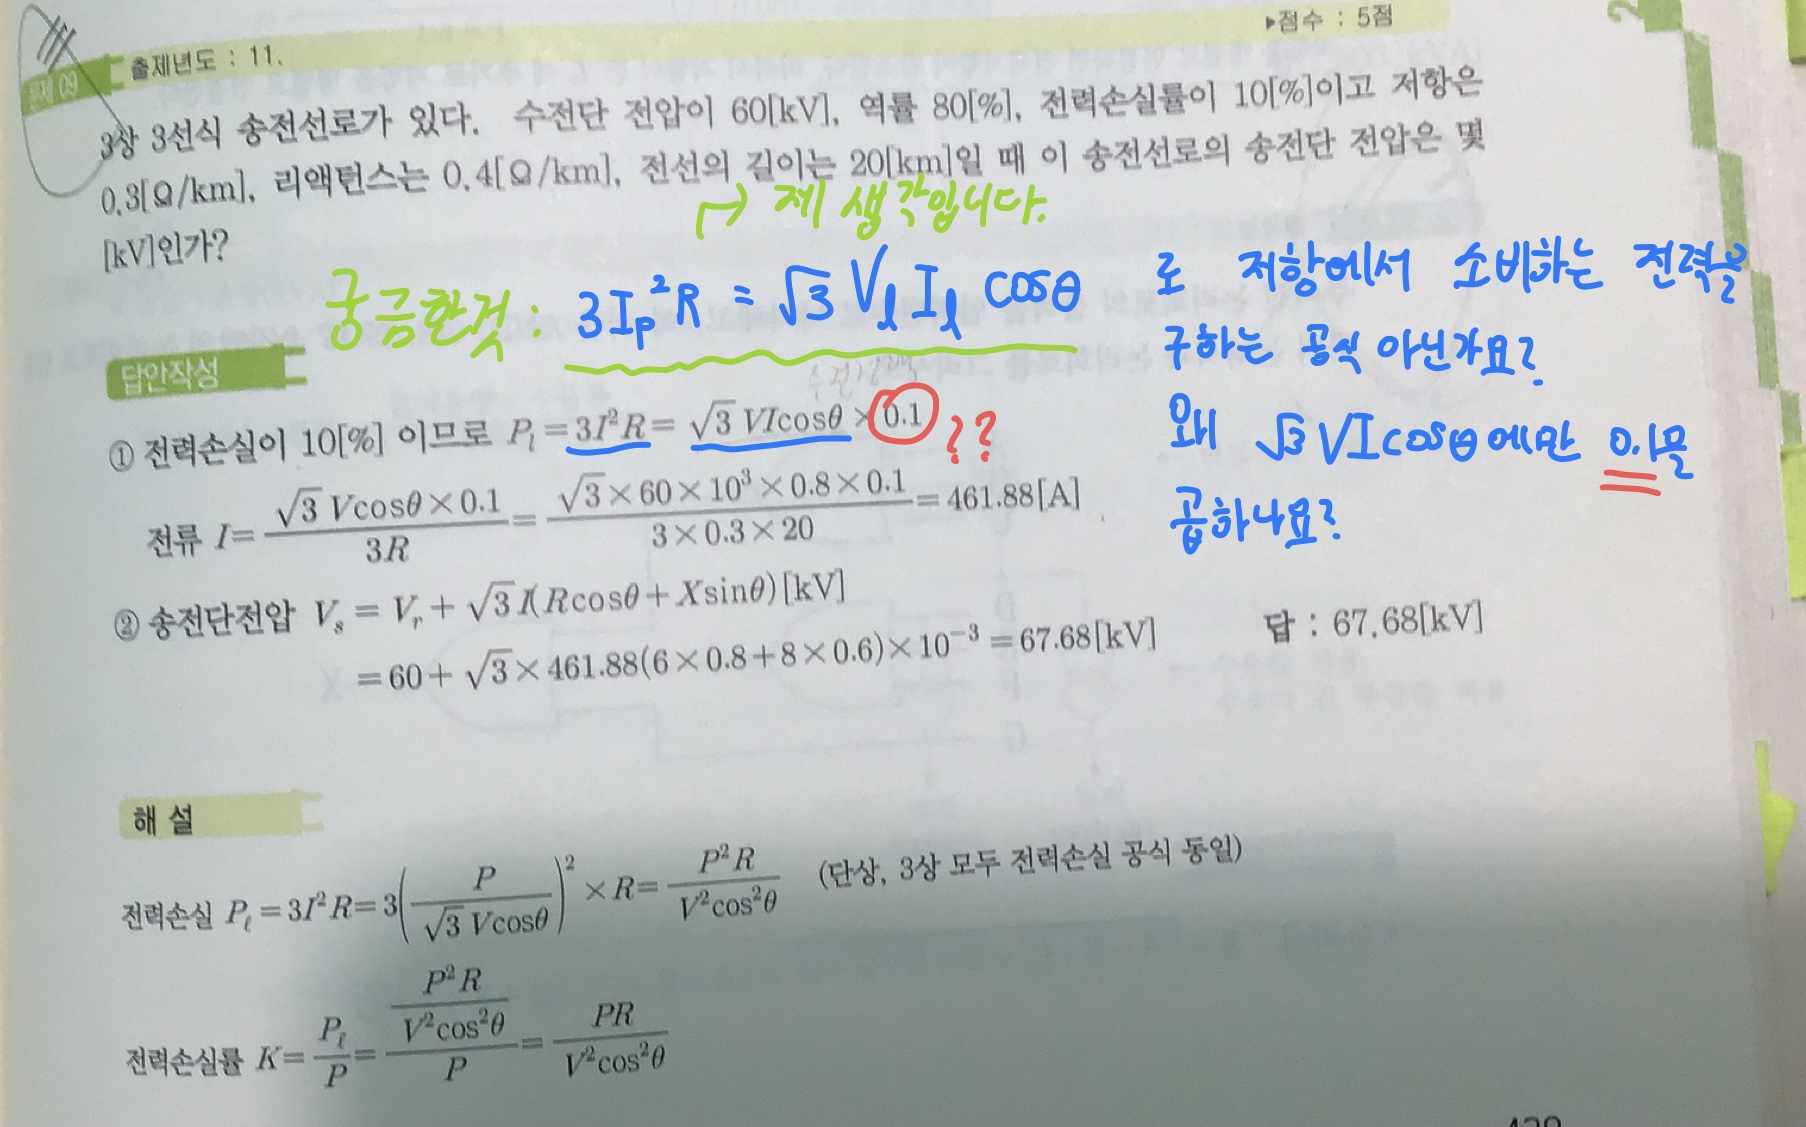 ▸점수 : 5점
문제 09 출제년도 : 11.
3상 3선식 송전선로가 있다. 수전단 전압이 60[kV], 역률 80[%], 전력손실률이 10[%]이고 저항은
0.3[Ω/km], 리액턴스는 0.4[Ω/km], 전선의 길이는 20[km]일 때 이 송전선로의 송전단 전압은 몇
[kV]인가?
→ 제 생각입니다.
궁금한것 : 3Ip²R = √3 Vl Il cosθ 로 저항에서 소비하는 전력을
구하는 공식 아닌가요?
왜 √3 VI cosθ에만 0.1을
곱하나요?
답안작성
① 전력손실이 10[%] 이므로 Pl = 3I²R = √3 VIcosθ × 0.1 ??
전류 I = (√3 Vcosθ × 0.1)/(3R) = (√3 × 60 × 10³ × 0.8 × 0.1)/(3 × 0.3 × 20) = 461.88[A]
② 송전단전압 Vs = Vr + √3 I(Rcosθ + Xsinθ)[kV]
= 60 + √3 × 461.88(6 × 0.8 + 8 × 0.6) × 10⁻³ = 67.68[kV] 답 : 67.68[kV]
해 설
전력손실 Pℓ = 3I²R = 3(P/(√3 Vcosθ))² × R = P²R/(V²cos²θ) (단상, 3상 모두 전력손실 공식 동일)
전력손실률 K = Pℓ/P = (P²R/(V²cos²θ))/P = PR/(V²cos²θ)